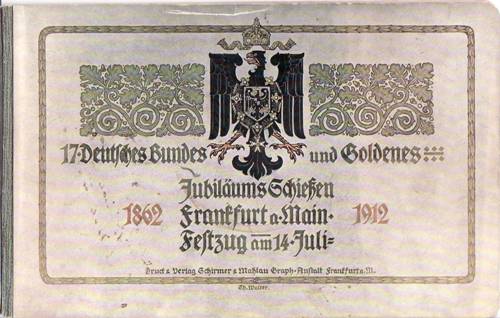 17. Deutsches Bundes und Goldenes
Jubiläums Schießen
1862 Frankfurt a. Main. 1912
Festzug am 14. Juli
Druck & Verlag Schirmer & Mahlau Graph. Anstalt Frankfurt a. M.
Th. Walter.